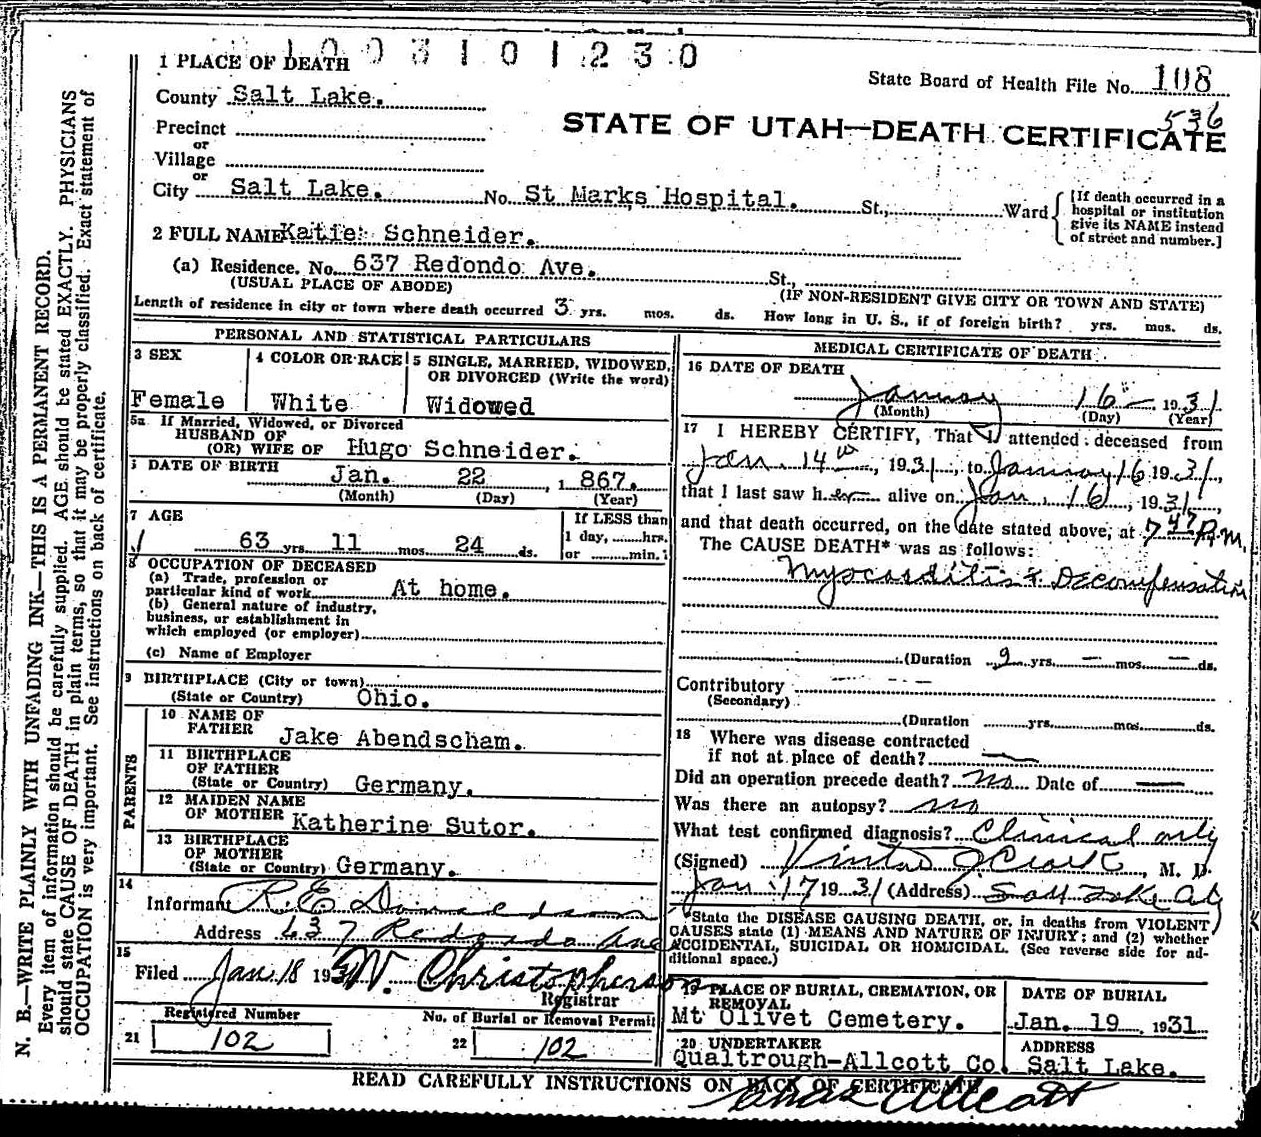 1003101230
1 PLACE OF DEATH
State Board of Health File No. 108
536
County Salt Lake.
STATE OF UTAH—DEATH CERTIFICATE
Precinct
or
Village
or
City Salt Lake. No. St Marks Hospital. St., Ward
[If death occurred in a
hospital or institution
give its NAME instead
of street and number.]
2 FULL NAME Katie Schneider.
(a) Residence. No. 637 Redondo Ave. St.,
(USUAL PLACE OF ABODE) (IF NON-RESIDENT GIVE CITY OR TOWN AND STATE)
Length of residence in city or town where death occurred 3 yrs. mos. ds. How long in U. S., if of foreign birth? yrs. mos. ds.
PERSONAL AND STATISTICAL PARTICULARS
3 SEX
Female
4 COLOR OR RACE
White
5 SINGLE, MARRIED, WIDOWED,
OR DIVORCED (Write the word)
Widowed
5a If Married, Widowed, or Divorced
HUSBAND OF
(OR) WIFE OF Hugo Schneider.
6 DATE OF BIRTH
Jan. 22, 1867.
(Month) (Day) (Year)
7 AGE
63 yrs. 11 mos. 24 ds.
If LESS than
1 day, hrs.
or min.
8 OCCUPATION OF DECEASED
(a) Trade, profession or
particular kind of work At home.
(b) General nature of industry,
business, or establishment in
which employed (or employer)
(c) Name of Employer
9 BIRTHPLACE (City or town)
(State or Country) Ohio.
PARENTS
10 NAME OF
FATHER Jake Abendscham.
11 BIRTHPLACE
OF FATHER
(State or Country) Germany.
12 MAIDEN NAME
OF MOTHER Katherine Sutor.
13 BIRTHPLACE
OF MOTHER
(State or Country) Germany.
14
Informant R. E. Donaldson
Address 637 Redondo Ave
15
Filed Jan. 18 1931 W. Christopherson
Registrar
Registered Number
21 102
No. of Burial or Removal Permit
22 102
MEDICAL CERTIFICATE OF DEATH
16 DATE OF DEATH
January 16 1931
(Month) (Day) (Year)
17 I HEREBY CERTIFY, That I attended deceased from
Jan. 14th, 1931, to January 16 1931,
that I last saw her alive on Jan. 16, 1931,
and that death occurred, on the date stated above, at 7 47 P.m.
The CAUSE DEATH* was as follows:
Myocarditis & Decompensation
(Duration 2 yrs. — mos. — ds.
Contributory
(Secondary)
(Duration yrs. mos. ds.
18 Where was disease contracted
if not at place of death? —
Did an operation precede death? No Date of —
Was there an autopsy? no
What test confirmed diagnosis? Clinical only
(Signed) M. D.
Jan. 17 1931 (Address) Salt Lake City
*State the DISEASE CAUSING DEATH, or, in deaths from VIOLENT
CAUSES state (1) MEANS AND NATURE OF INJURY; and (2) whether
ACCIDENTAL, SUICIDAL OR HOMICIDAL. (See reverse side for ad-
ditional space.)
19 PLACE OF BURIAL, CREMATION, OR
REMOVAL
Mt Olivet Cemetery.
DATE OF BURIAL
Jan. 19 1931
20 UNDERTAKER
Qualtrough-Allcott Co.
ADDRESS
Salt Lake.
READ CAREFULLY INSTRUCTIONS ON BACK OF CERTIFICATE
Allcott
N. B.—WRITE PLAINLY WITH UNFADING INK—THIS IS A PERMANENT RECORD.
Every item of information should be carefully supplied. AGE should be stated EXACTLY. PHYSICIANS
should state CAUSE OF DEATH in plain terms, so that it may be properly classified. Exact statement of
OCCUPATION is very important. See instructions on back of certificate.